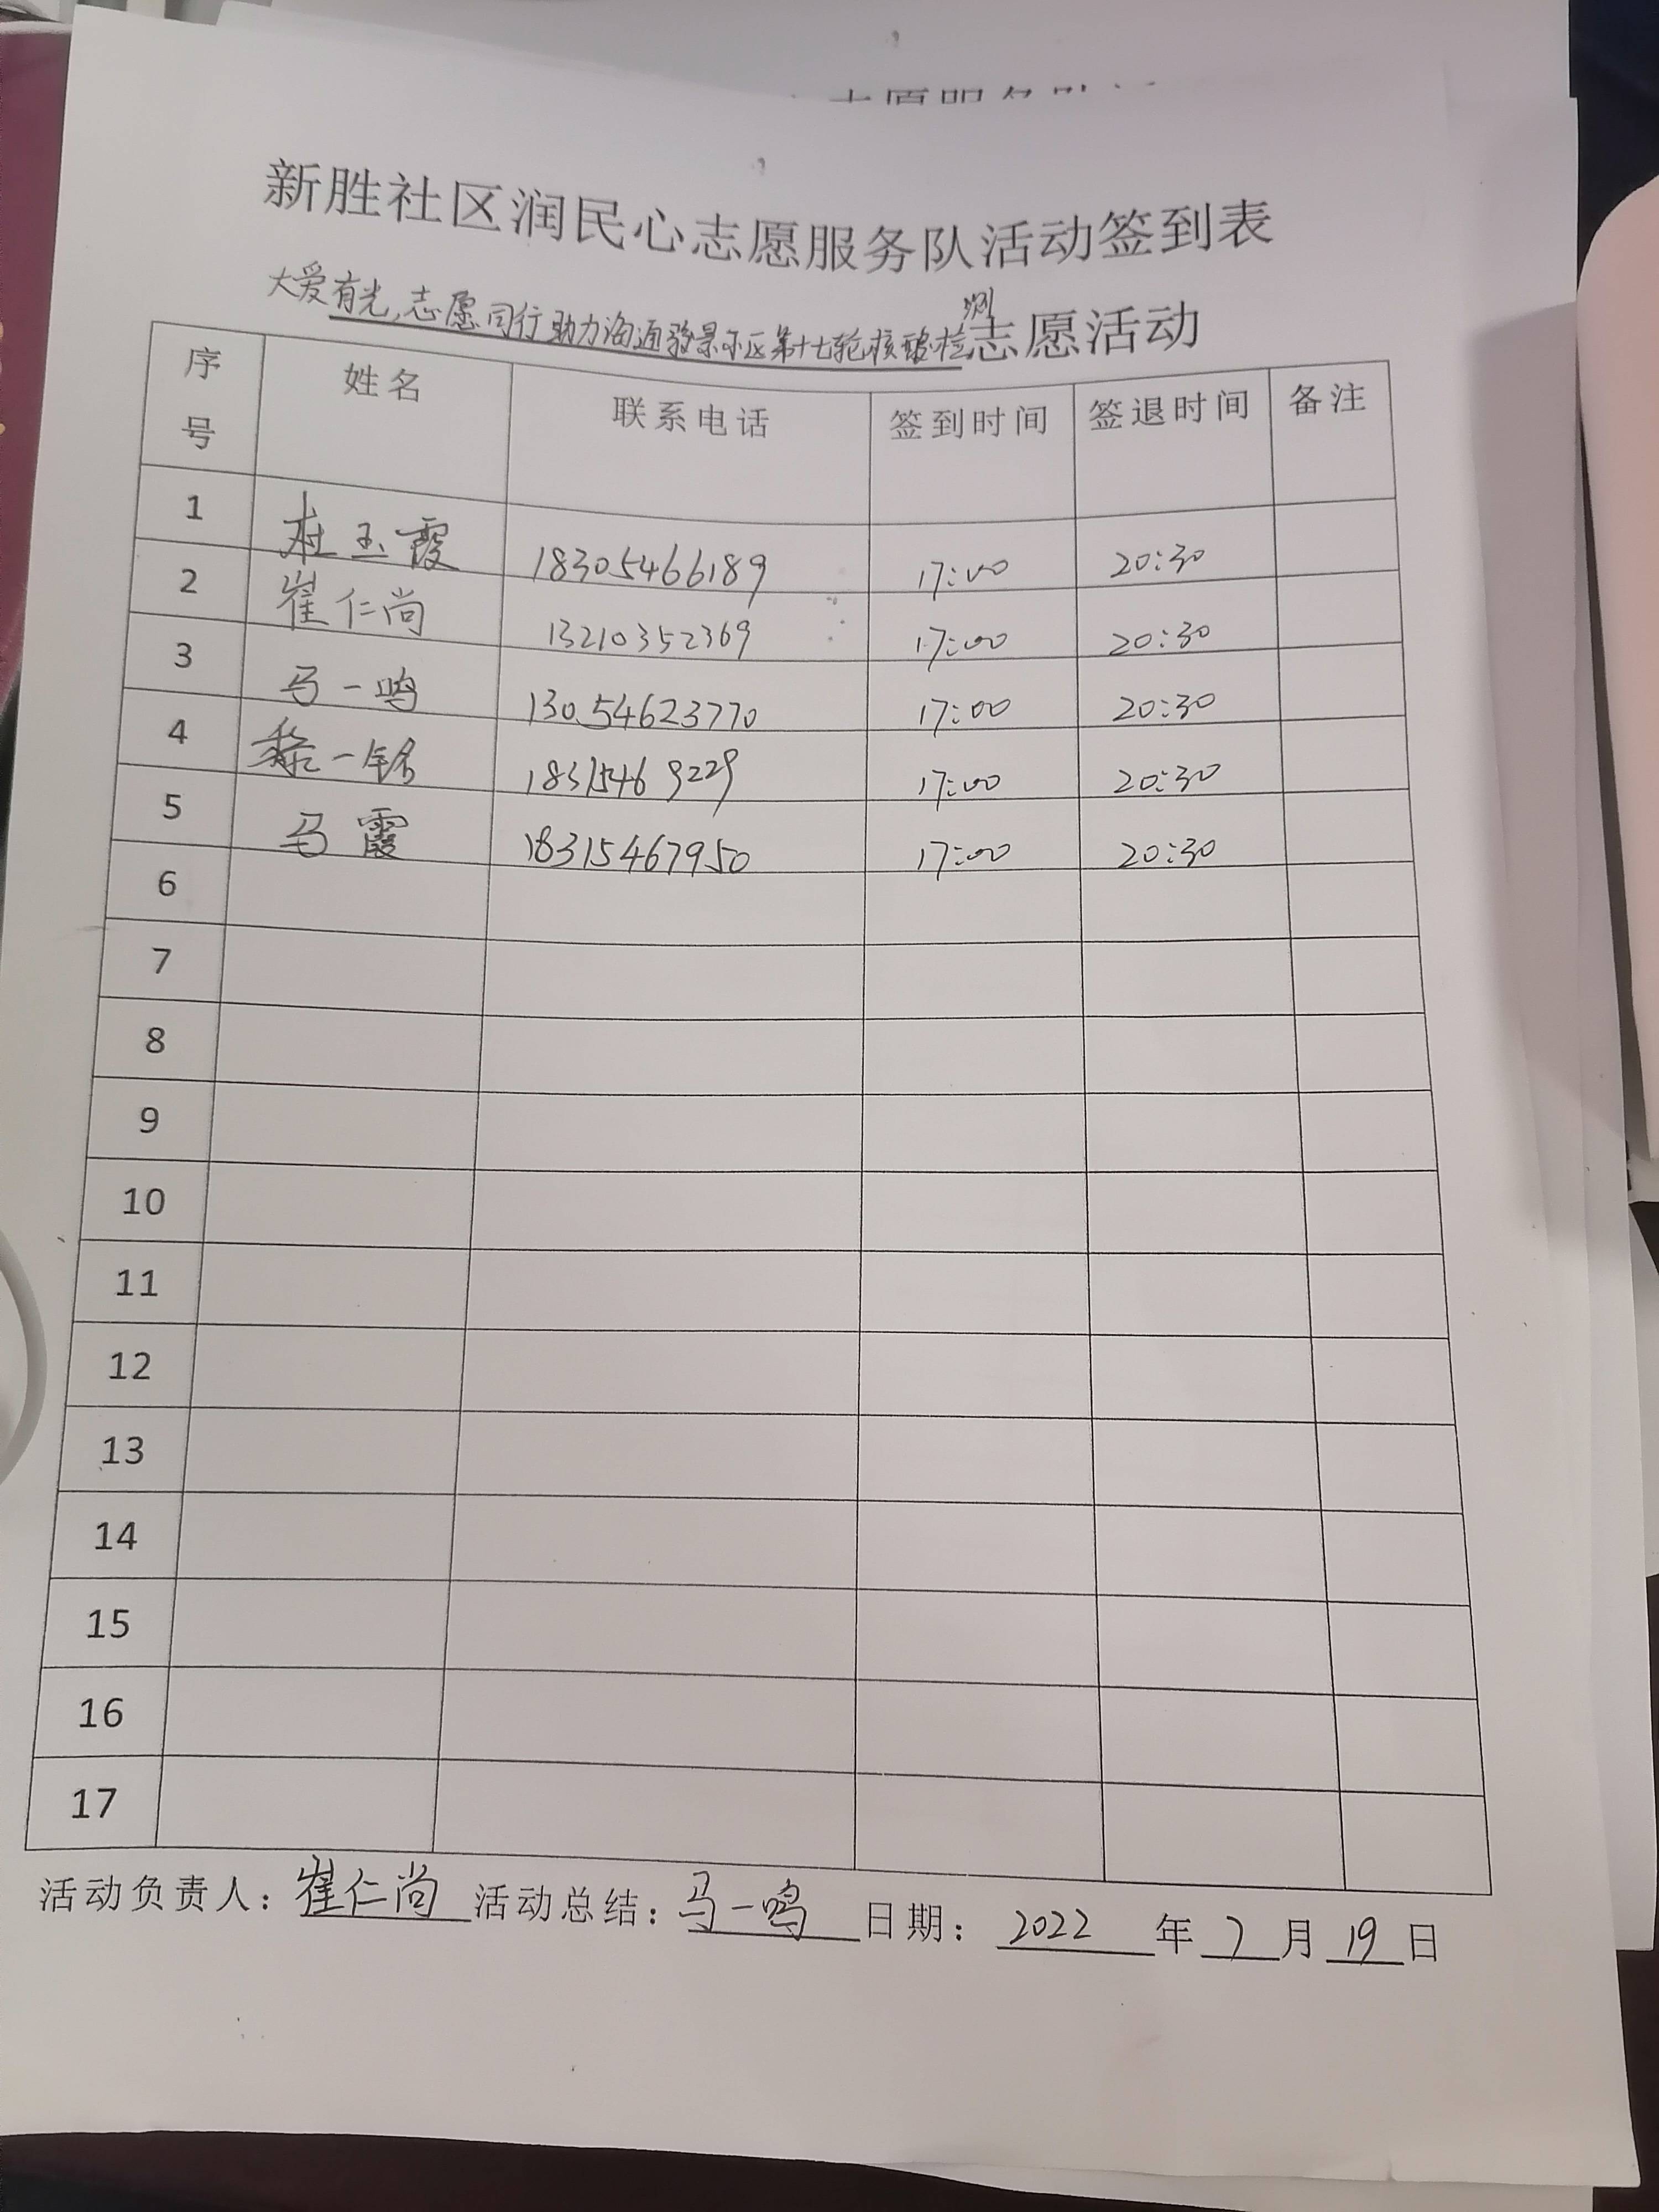 新胜社区润民心志愿服务队活动签到表
大爱有光,志愿同行助力海通骏景小区第十七轮核酸检测志愿活动
序号 姓名 联系电话 签到时间 签退时间 备注
1 杜玉霞 18305466189 17:00 20:30
2 崔仁尚 13210352369 17:00 20:30
3 马一鸣 13054623770 17:00 20:30
4 一铭 18315469229 17:00 20:30
5 马霞 18315467950 17:00 20:30
6
7
8
9
10
11
12
13
14
15
16
17
活动负责人:崔仁尚 活动总结:马一鸣 日期: 2022 年 7 月 19 日